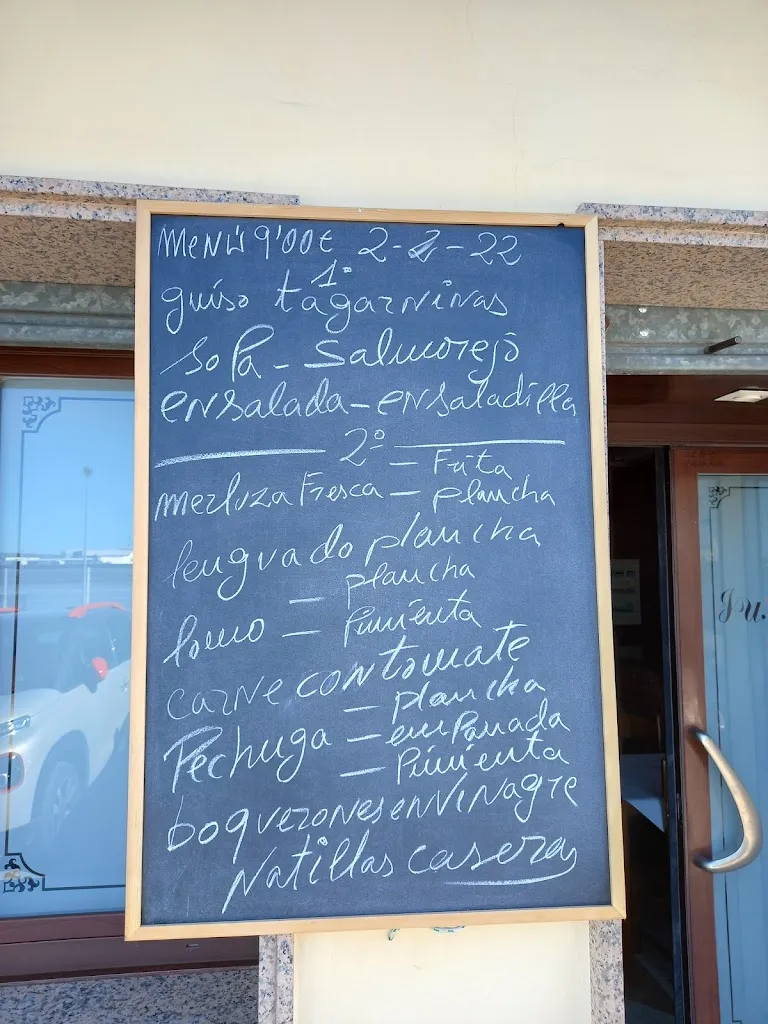 menú 9'00€ 2-2-22
1º
guiso tagarninas
sopa - salmorejo
ensalada - ensaladilla
2º
- Frita
merluza Fresca - plancha
lenguado plancha
- plancha
lomo - Pimienta
carne con tomate
- plancha
Pechuga - emPanada
- Pimienta
boquerones en vinagre
Natillas caseras